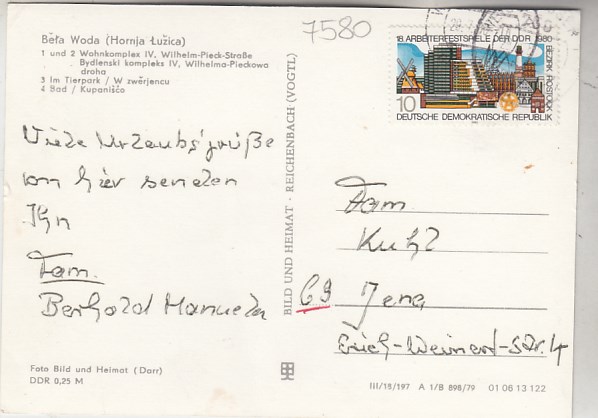 Běła Woda (Hornja Łužica)
1 und 2 Wohnkomplex IV, Wilhelm-Pieck-Straße
Bydlenski kompleks IV, Wilhelma-Pieckowa
droha
3 Im Tierpark / W zwěrjencu
4 Bad / Kupanišćo
7580
18. ARBEITERFESTSPIELE DER DDR 1980
BEZIRK ROSTOCK
10
DEUTSCHE DEMOKRATISCHE REPUBLIK
Viele Urlaubsgrüße
von hier senden
Ihn
Fam.
Berthold Manuela
BILD UND HEIMAT · REICHENBACH (VOGTL)
Fam.
Kuhl
69 Jena
Erich-Weinert-Str. 4
Foto Bild und Heimat (Darr)
DDR 0,25 M
III/18/197 A 1/B 898/79 01 06 13 122